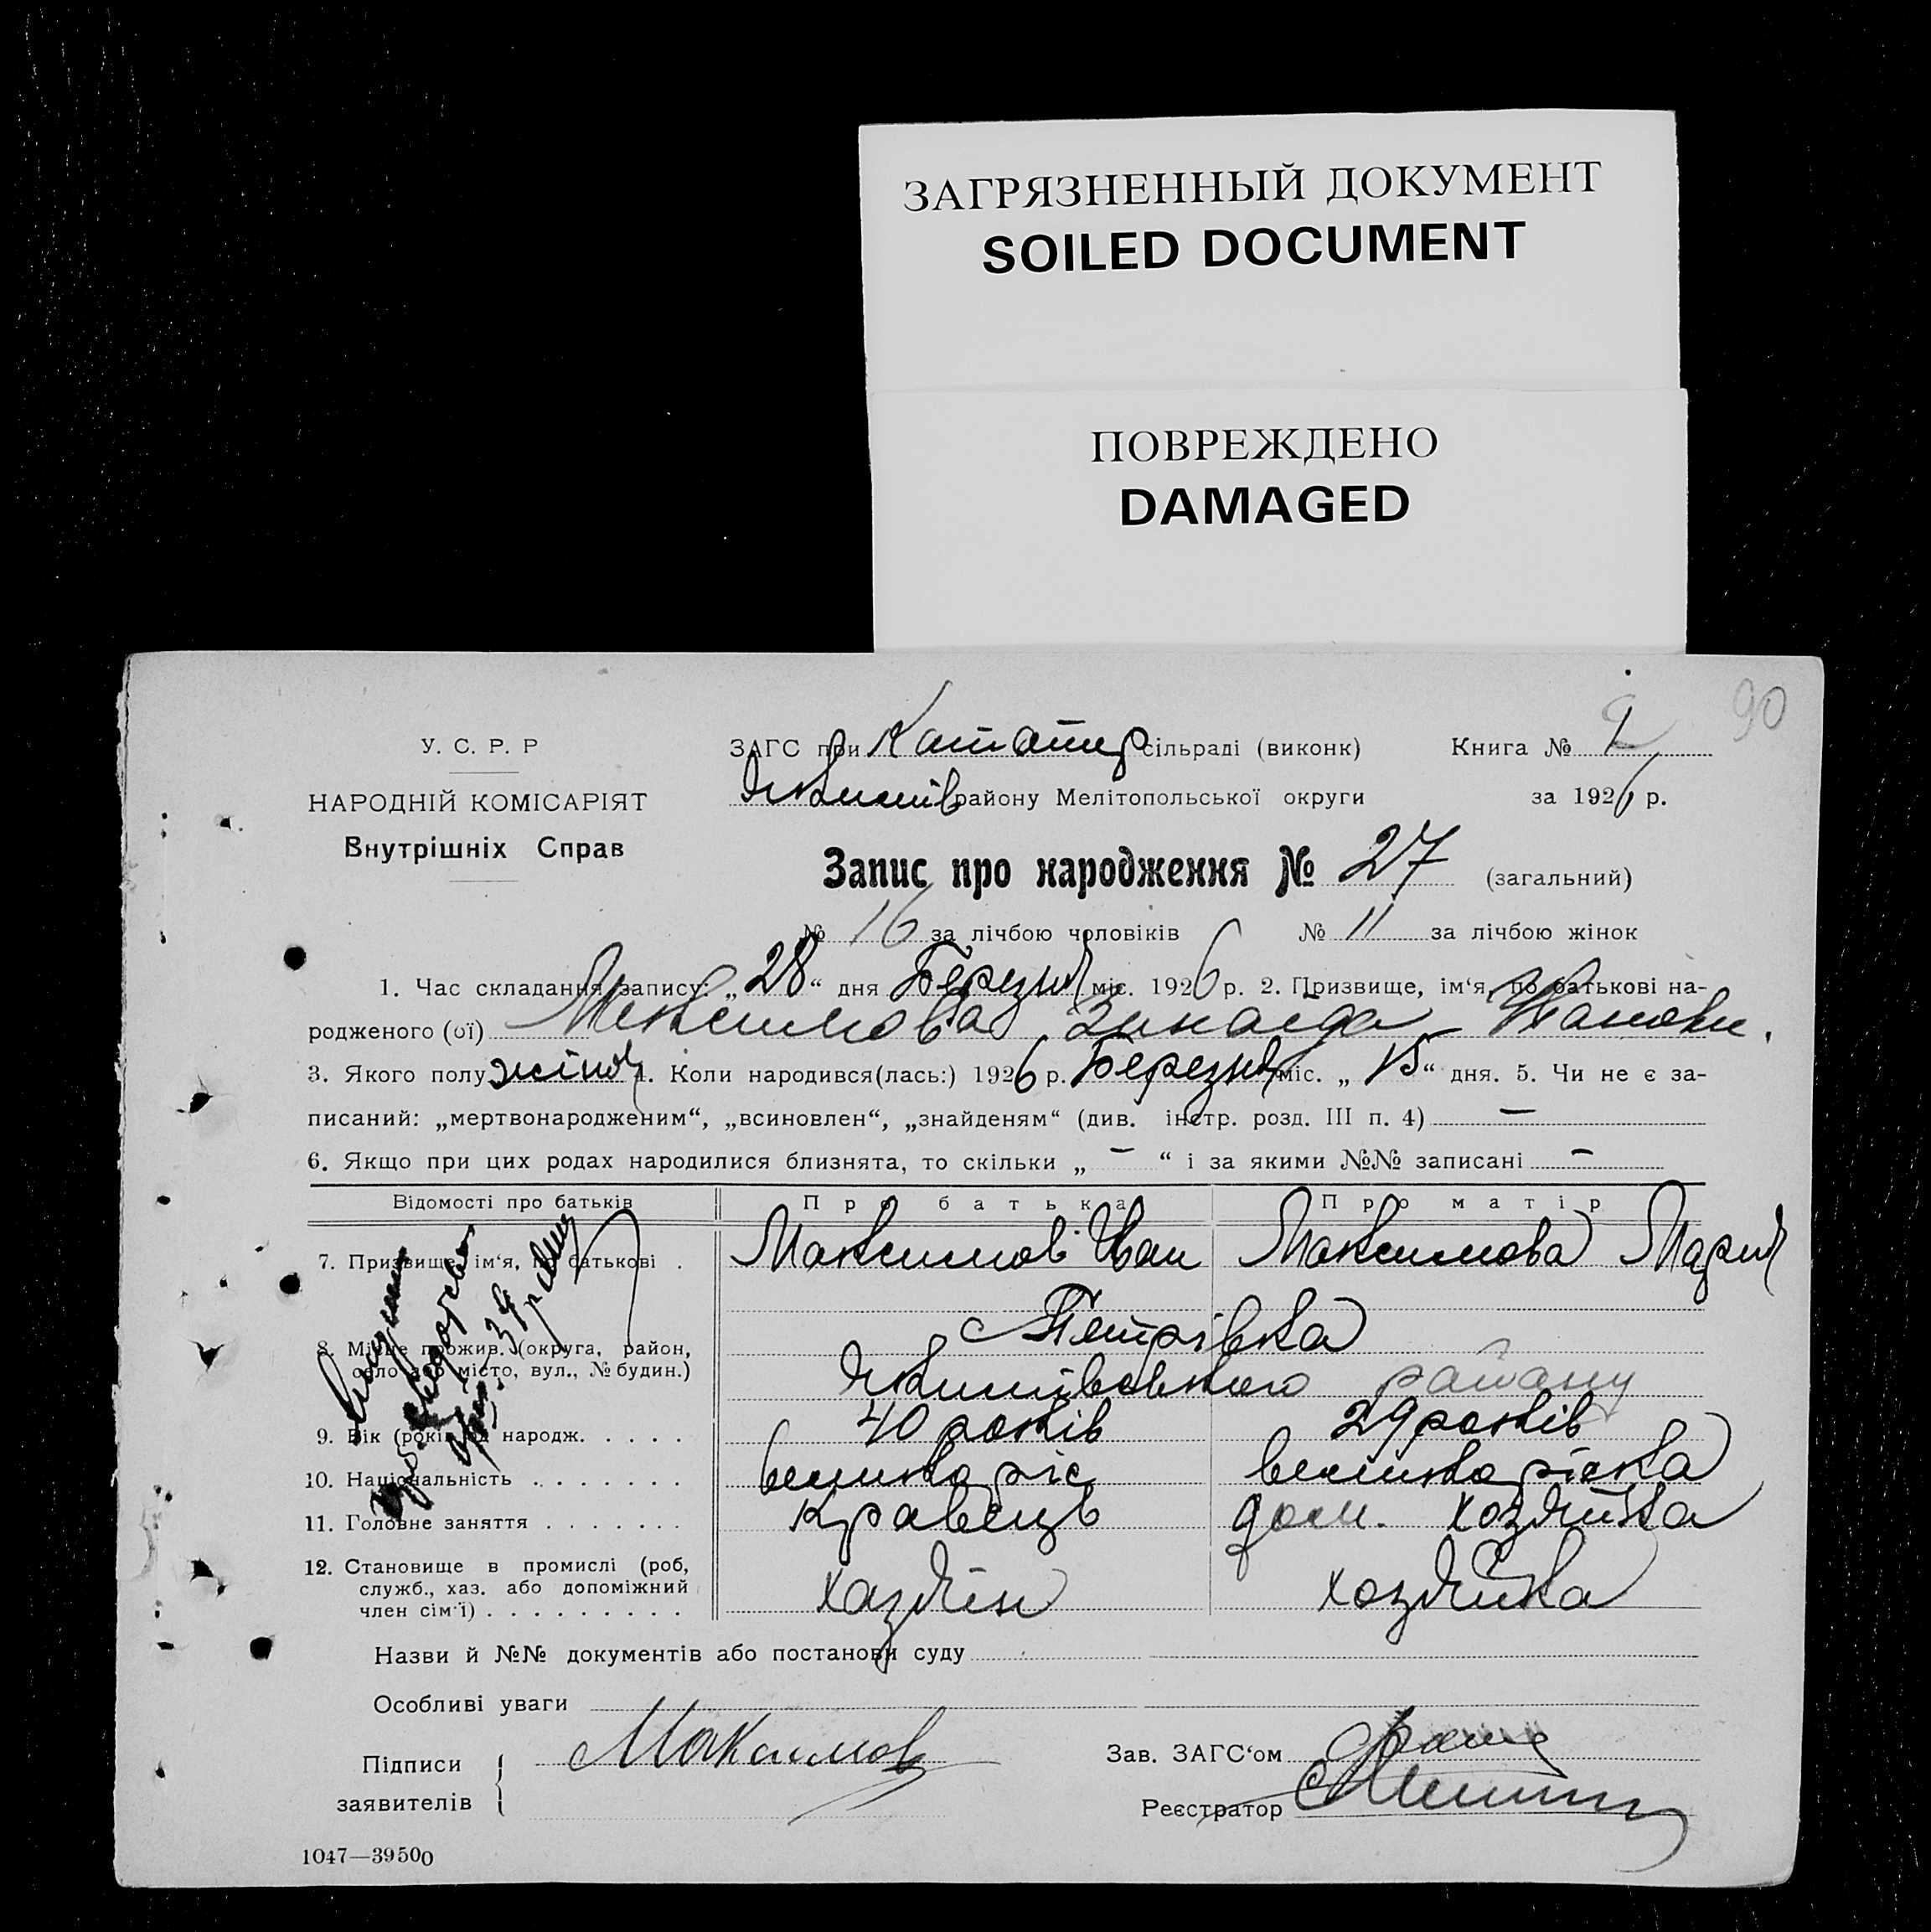 ЗАГРЯЗНЕННЫЙ ДОКУМЕНТ
SOILED DOCUMENT
ПОВРЕЖДЕНО
DAMAGED
90
У. С. Р. Р
НАРОДНІЙ КОМІСАРІЯТ
Внутрішніх Справ
ЗАГС при сільраді (виконк) Книга №
Якимів району Мелітопольської округи за 1926 р.
Запис про народження № 27 (загальний)
№ 16 за лічбою чоловіків № 11 за лічбою жінок
1. Час складання запису: „28“ дня Березня міс. 1926 р. 2. Призвище, ім‘я, по батькові на-
родженого (ої) Максимова Зинаїда
3. Якого полу жіноч 4. Коли народився(лась:) 1926 р. Березня міс. „15“ дня. 5. Чи не є за-
писаний: „мертвонародженим“, „всиновлен“, „знайденям“ (див. інстр. розд. III п. 4) —
6. Якщо при цих родах народилися близнята, то скільки „ — “ і за якими №№ записані —
Відомості про батьків Про батька Про матір
7. Призвище, ім‘я, по батькові . Максимов Іван Максимова Мария
с Петрівка
8. Місце прожив. (округа, район,
село або місто, вул., № будин.)
Якимівського району
9. Вік (років од народж. . . . . 40 років 29 років
10. Національність . . . . . . . великоріс великоріска
11. Головне заняття . . . . . . . Кравець дом. хозяйка
12. Становище в промислі (роб,
служб., хаз. або допоміжний
член сім‘ї) . . . . . . . . . хазяін хозяйка
Назви й №№ документів або постанови суду
Особливі уваги
Підписи
заявителів
Максимов
Зав. ЗАГС‘ом
Реєстратор
1047—39500